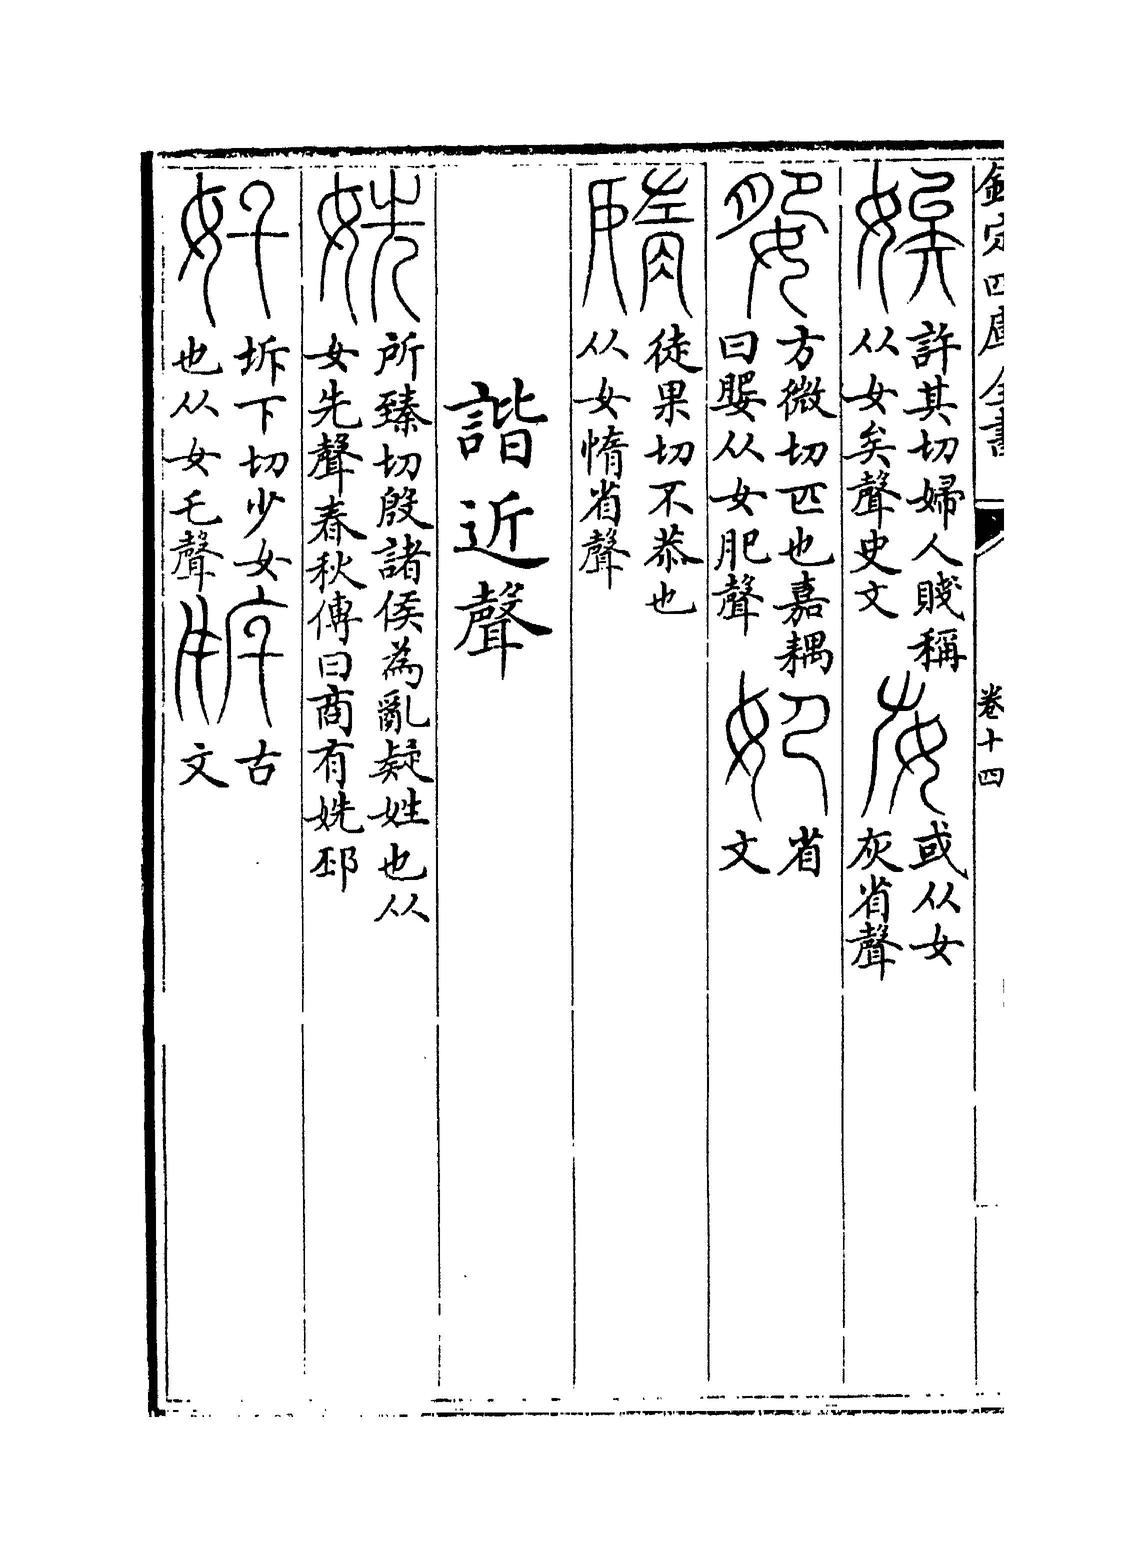 欽定四庫全書
卷十四
許其切婦人賤稱
从女矣聲史文
或从女
灰省聲
方微切匹也嘉耦
曰嬰从女肥聲
省
文
徒果切不恭也
从女惰省聲
諧近聲
所臻切殷諸侯為亂疑姓也从
女先聲春秋傳曰商有姺邳
坼下切少女
也从女乇聲
古
文